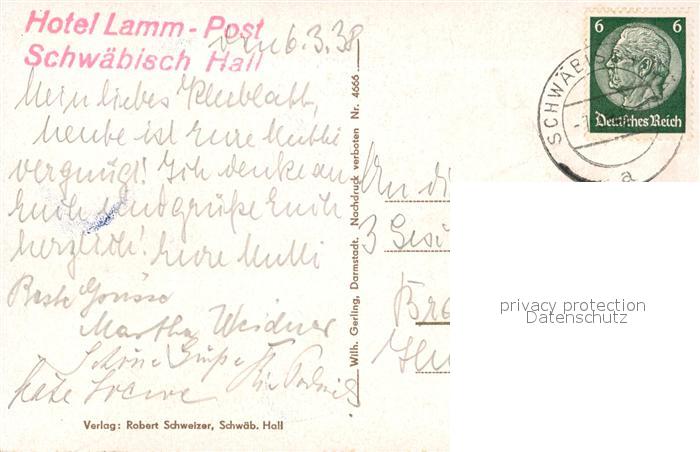 Hotel Lamm-Post
Schwäbisch Hall
den 6.3.38
Mein liebes Kleeblatt,
heute ist Eure Mutti
vergnügt! Ich denke an
Euch und grüße Euch
herzlich! Eure Mutti
Beste Grüsse
Martha Weidner
Schöne Grüße
Käte
Wilh. Gerling, Darmstadt. Nachdruck verboten Nr. 4666
An di
3 Ges
Br
Verlag: Robert Schweizer, Schwäb. Hall
6 6
Deutsches Reich
SCHWÄBIS
a
privacy protection
Datenschutz